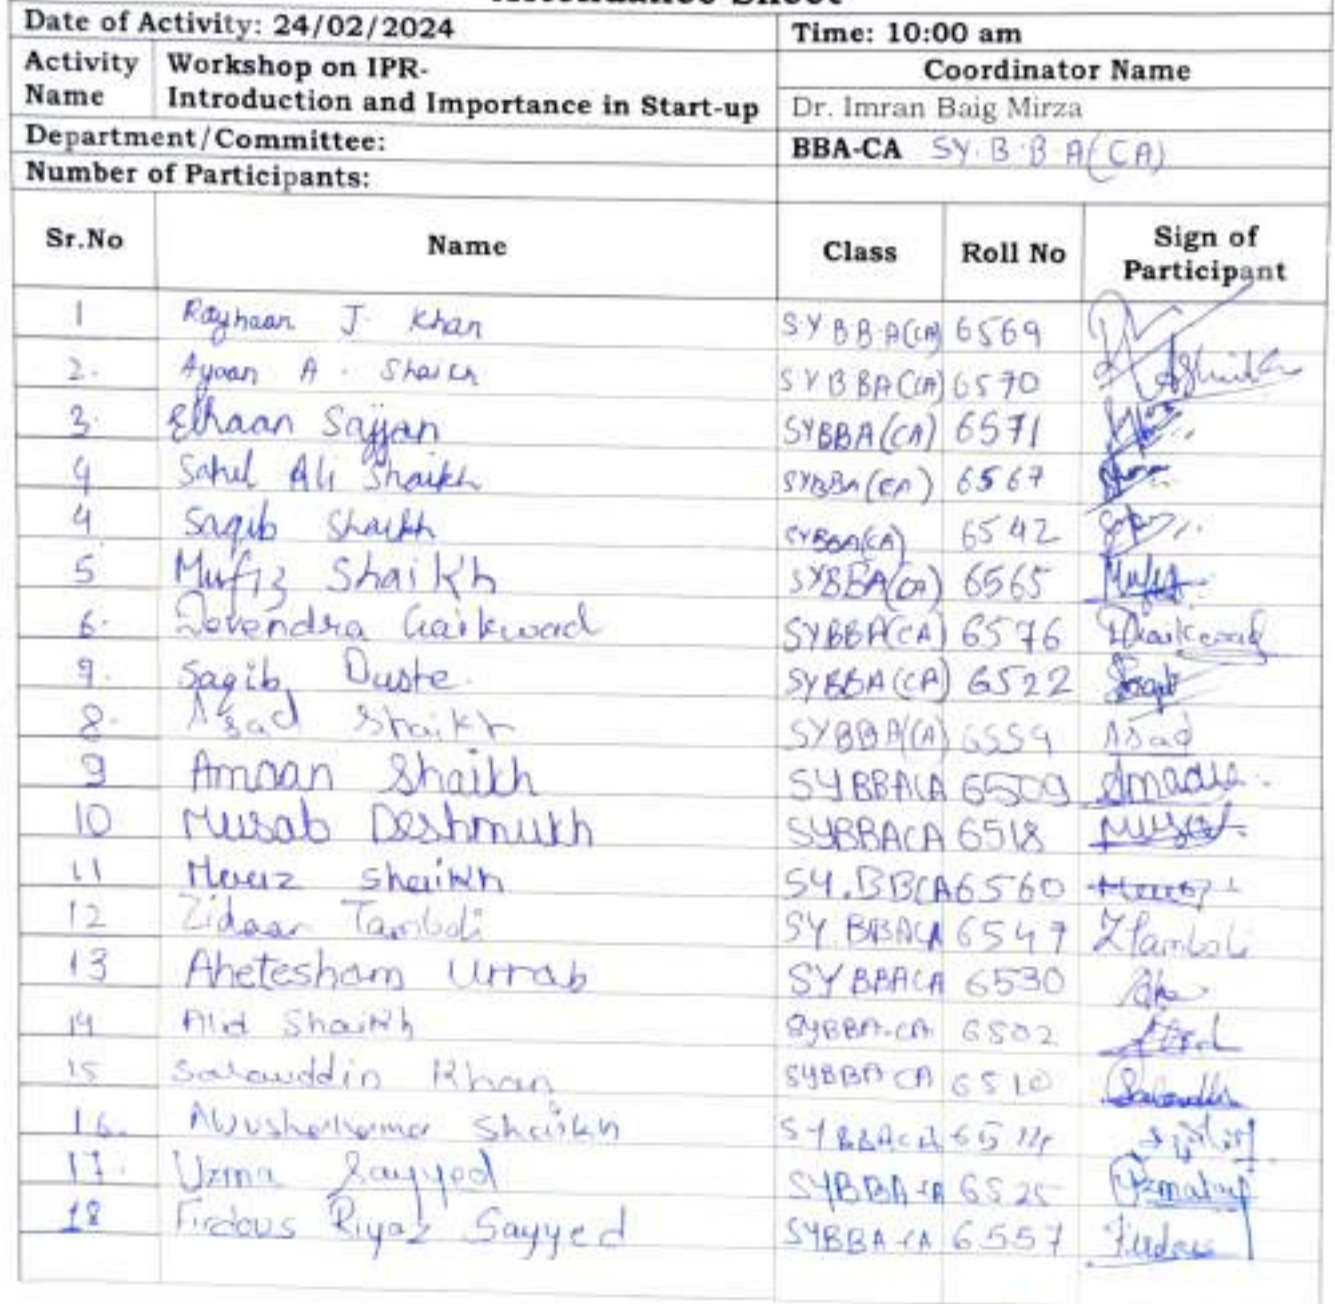 Attendance Sheet
Date of Activity: 24/02/2024 Time: 10:00 am
Activity Name Workshop on IPR- Coordinator Name
Introduction and Importance in Start-up Dr. Imran Baig Mirza
Department/Committee: BBA-CA SY.B.B.A(CA)
Number of Participants:
Sr.No Name Class Roll No Sign of Participant
1 Rayhaan J. Khan SYBBA(CA) 6569
2. Ayaan A. Shaikh SYBBA(CA) 6570 AShaikh
3. Elhaan Sajjan SYBBA(CA) 6571
4 Sahil Ali Shaikh SYBBA(CA) 6567
4 Saqib Shaikh SYBBA(CA) 6542
5 Mufiz Shaikh SYBBA(CA) 6565 Mufiz
6. Devendra Gaikwad SYBBA(CA) 6576 DGaikwad
7. Saqib Duste. SYBBA(CA) 6522
8. Asad Shaikh SYBBA(CA) 6559 Asad
9 Amaan Shaikh SYBBACA 6509
10 Musab Deshmukh SYBBACA 6518 Musab
11 Shaikh SY.BBCA 6560
12 Zidaan Tamboli SY.BBACA 6547 ZTamboli
13 Ahetesham Urrab SYBBACA 6530
14 Shaikh SYBBA-CA 6502
15 Khan SYBBA CA 6510
16. Shaikh SYBBACA
17. Uzma Sayyed SYBBA-CA 6525
18 Firdous Riyaz Sayyed SYBBA-CA 6557 Firdous